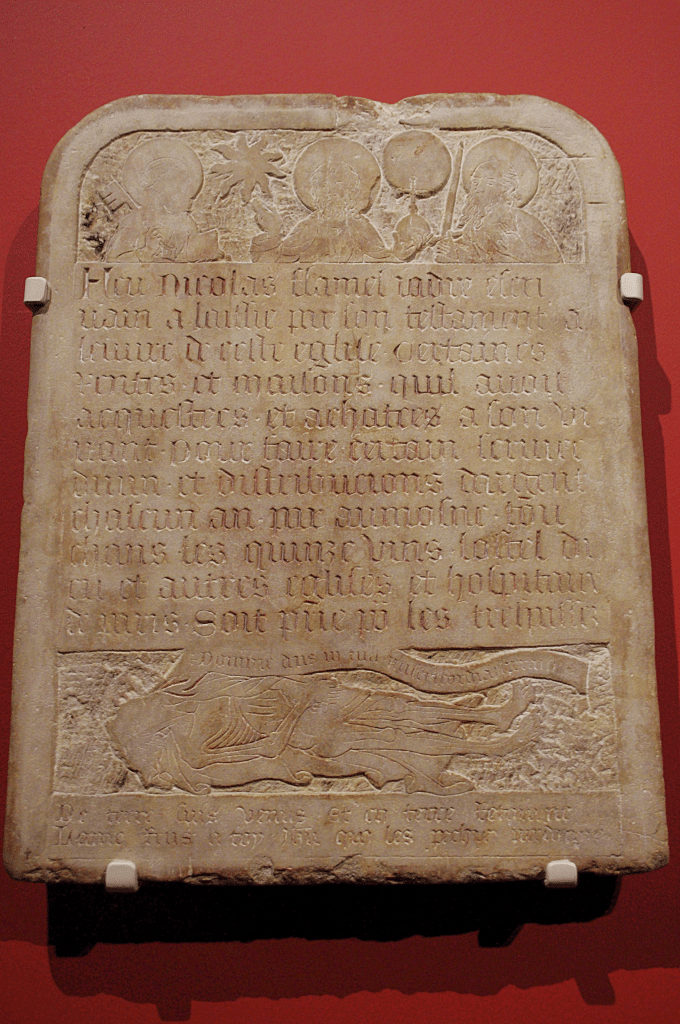 Feu Nicolas flamel jadiz escri
uain a laissie par son testament a
leuure de ceste eglise Certaines
rentes et maisons quil auoit
acquestees et achatees a son vi
uant pour faire certain seruice
diuin et distribucions dargent
chascun an par aumosne tou
chans les quinze vins lostel di
eu et autres eglises et hospitaux
de paris Soit prie po les trespassez
Domine dus in tua misericordia
De terre suis venus et en terre retourne
Lame rens a toy qui les pechiez pardonne